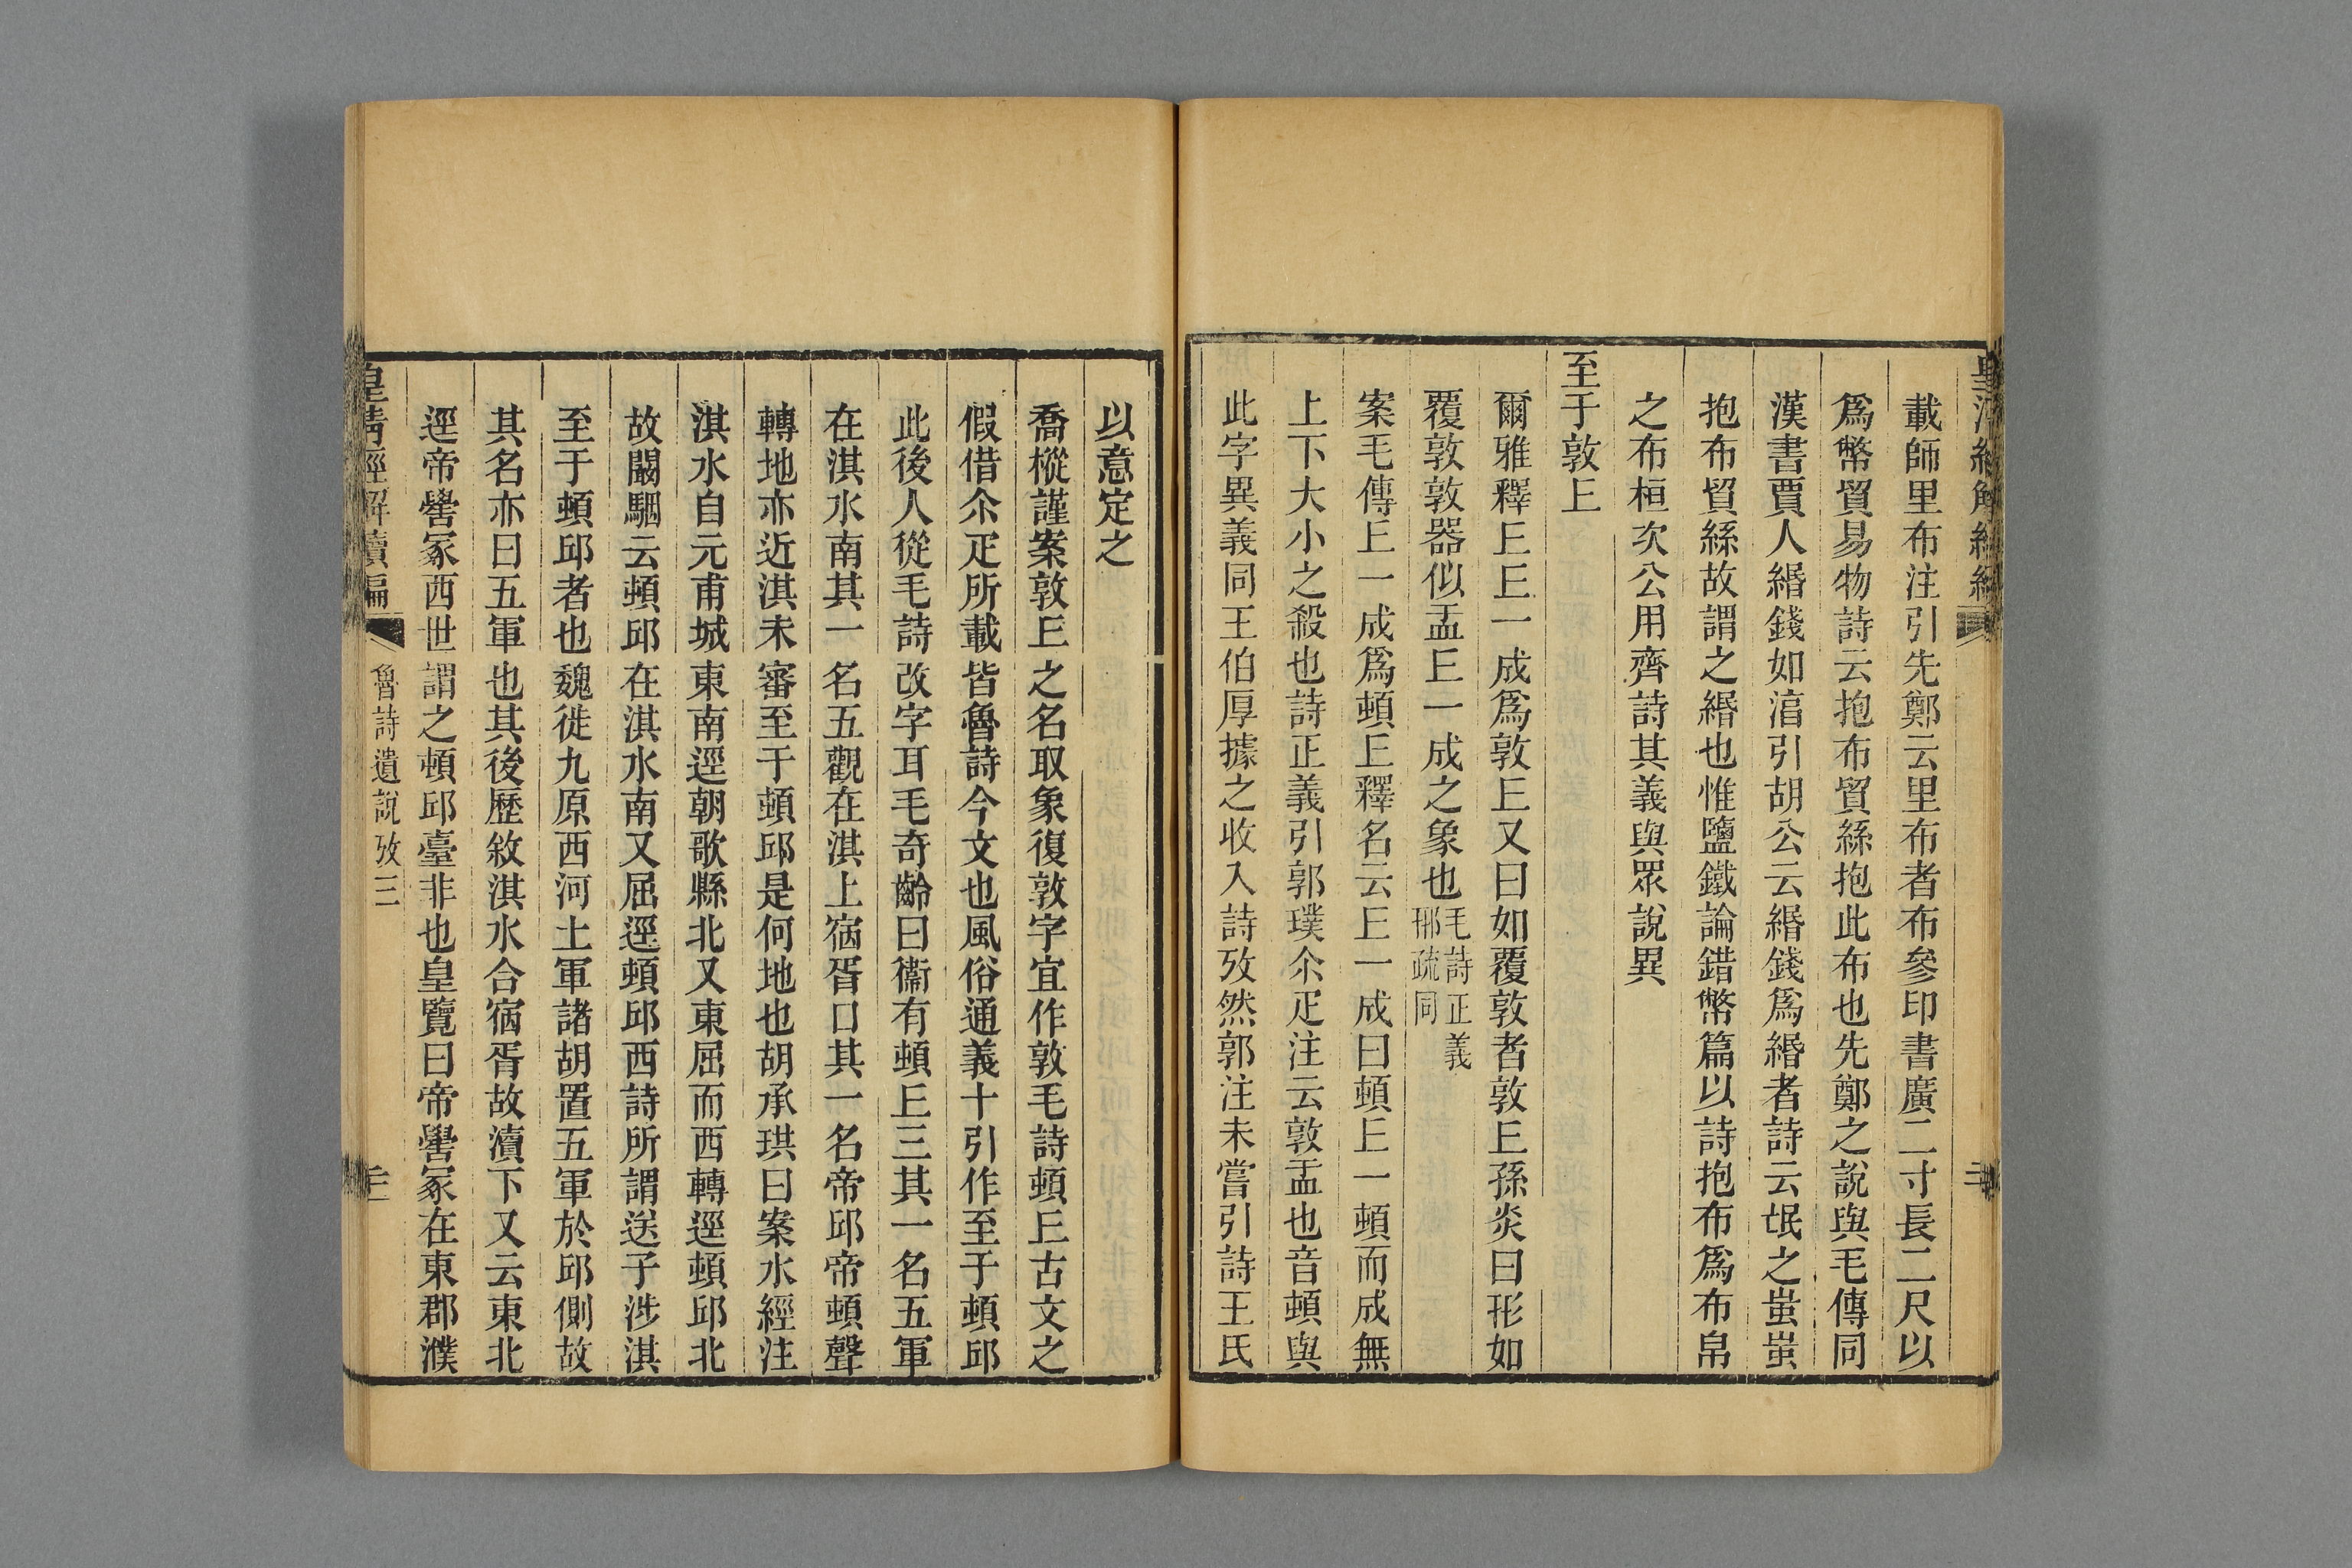 皇清經解續編
載師里布注引先鄭云里布者布參印書廣二寸長二尺以
爲幣貿易物詩云抱布貿絲抱此布也先鄭之說與毛傳同
漢書賈人緡錢如湻引胡公云緡錢爲緡者詩云氓之蚩蚩
抱布貿絲故謂之緡也惟鹽鐵論錯幣篇以詩抱布爲布帛
之布桓次公用齊詩其義與眾說異
至于敦丠
爾雅釋丠丠一成爲敦丠又曰如覆敦者敦丠孫炎曰形如
覆敦敦器似盂丠一成之象也毛詩正義邢疏同
案毛傳丠一成爲頓丠釋名云丠一成曰頓丠一頓而成無
上下大小之殺也詩正義引郭璞尒疋注云敦盂也音頓與
此字異義同王伯厚據之收入詩攷然郭注未嘗引詩王氏
以意定之
喬樅謹案敦丠之名取象復敦字宜作敦毛詩頓丠古文之
假借尒疋所載皆魯詩今文也風俗通義十引作至于頓邱
此後人從毛詩改字耳毛奇齡曰衞有頓丠三其一名五軍
在淇水南其一名五觀在淇上宿胥口其一名帝邱帝頓聲
轉地亦近淇未審至于頓邱是何地也胡承珙曰案水經注
淇水自元甫城東南逕朝歌縣北又東屈而西轉逕頓邱北
故闞駰云頓邱在淇水南又屈逕頓邱西詩所謂送子涉淇
至于頓邱者也魏徙九原西河土軍諸胡置五軍於邱側故
其名亦曰五軍也其後歷敘淇水合宿胥故瀆下又云東北
逕帝嚳冢西世謂之頓邱臺非也皇覽曰帝嚳冢在東郡濮
皇清經解續編 魯詩遺說攷三